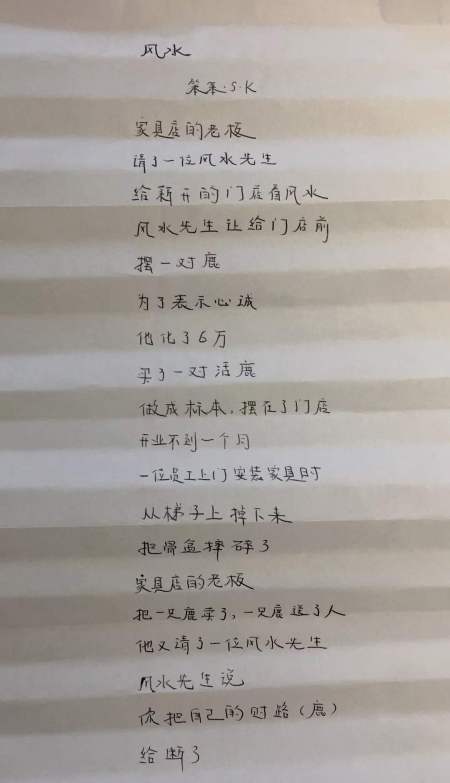 风水
笨笨·S·K
家具店的老板
请了一位风水先生
给新开的门店看风水
风水先生让给门店前
摆一对鹿
为了表示心诚
他花了6万
买了一对活鹿
做成标本，摆在了门店
开业不到一个月
一位员工上门安装家具时
从梯子上掉下来
把骨盆摔碎了
家具店的老板
把一只鹿卖了，一只鹿送了人
他又请了一位风水先生
风水先生说
你把自己的财路（鹿）
给断了